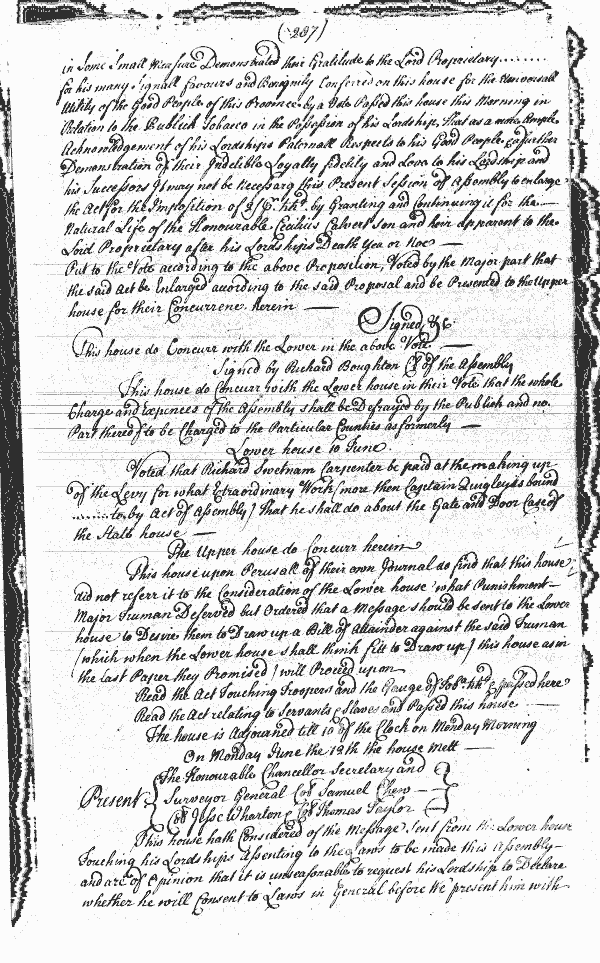 (237)
in Some Small measure Demonstrated their Gratitude to the Lord Proprietary.......
for his many Signall favours and Benignity Conferred on this house for the Universall
Utility of the Good People of this Province by a Vote Passed this house this Morning in
Relation to the Publick Tobacco in the Possession of his Lordship, That as a more Ample
Acknowledgement of his Lordships Paternall Respects to his Good People & a further
Demonstration of their Indelible Loyalty fidelity and Love to his Lordship and
his Successors It may not be Necessary this Present Session of Assembly to enlarge
the Act for the Imposition of 2/ P hhd. by Granting and Continuing it for the —
Natural Life of the Honourable Cecilius Calvert Son and heir apparent to the
Lord Proprietary after his Lordships Death Yea or Noe —
Put to the Vote according to the above Proposition, Voted by the Major part that
the said Act be Enlarged according to the said Proposal and be Presented to the Upper
house for their Concurrence herein —
Signed &c
This house do Concurr with the Lower in the above Vote. —
Signed by Richard Boughton Cl of the Assembly
This house do Concurr with the Lower house in their Vote that the whole
Charge and Expences of the Assembly shall be Defrayed by the Publick and no
Part thereof to be Charged to the Particular Counties as formerly —
Lower house 10 June.
Voted that Richard Swetnam Carpenter be paid at the making up
of the Levy for what Extraordinary Work (more then Captain Quigley is bound
........to by Act of Assembly) that he shall do about the Gate and Door Case of
the State house —
The Upper house do Concurr herein
This house upon Perusall of their own Journal do find that this house
did not referr it to the Consideration of the Lower house what Punishment —
Major Truman Deserved but Ordered that a Message should be sent to the Lower
house to Desire them to Draw up a Bill of Attainder against the said Truman
(which when the Lower house shall think fitt to Draw up) this house as in
the last Paper they Promised) will Proceed upon
Read the Act Touching Troopers and the Gauge of Tob. hhds & passed here
Read the Act relating to Servants & Slaves and Passed this house
The house is Adjourned till 10 of the Clock on Monday Morning
On Monday June the 12th the house Mett —
Present { The Honourable Chancellor Secretary and
Surveyor General Col Samuel Chew —
Col Jesse Wharton & Col Thomas Taylor — }
This house hath Considered of the Message Sent from the Lower house
Touching his Lordships Assenting to the Laws to be made this Assembly —
and are of Opinion that it is unseasonable to request his Lordship to Declare
whether he will Consent to Laws in General before We present him with